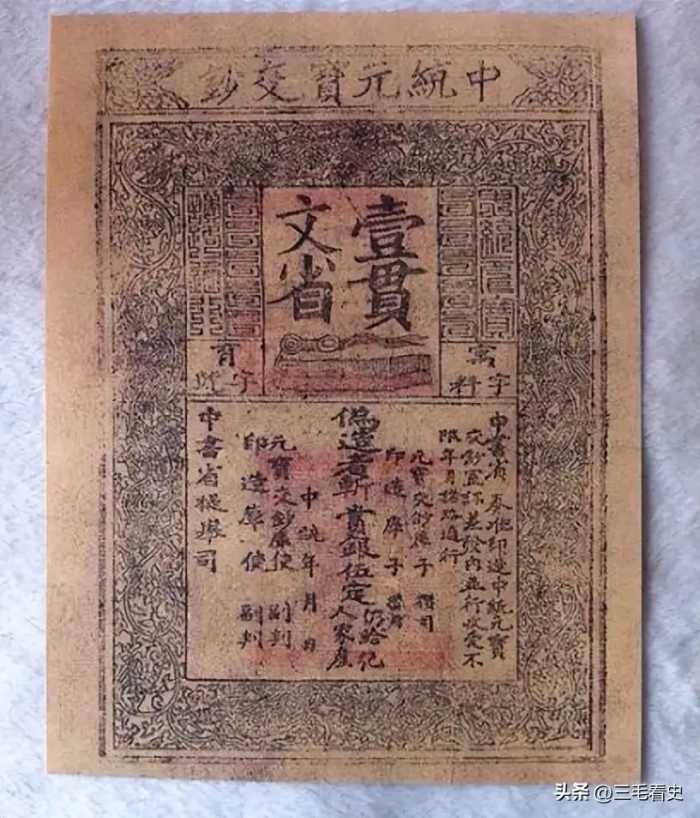 中統元寶交鈔
壹貫
文省
字料
字號
中書省 奏准印造中統元寶
交鈔宣課差發內並行收受不
限年月諸路通行
元寶交鈔庫子 攢司
印造庫子 攢司
偽造者斬賞銀伍定仍給犯
人家產
中統年月日
元寶交鈔庫使 副判
印造庫使 副判
中書省提舉司
头条 @三毛看史